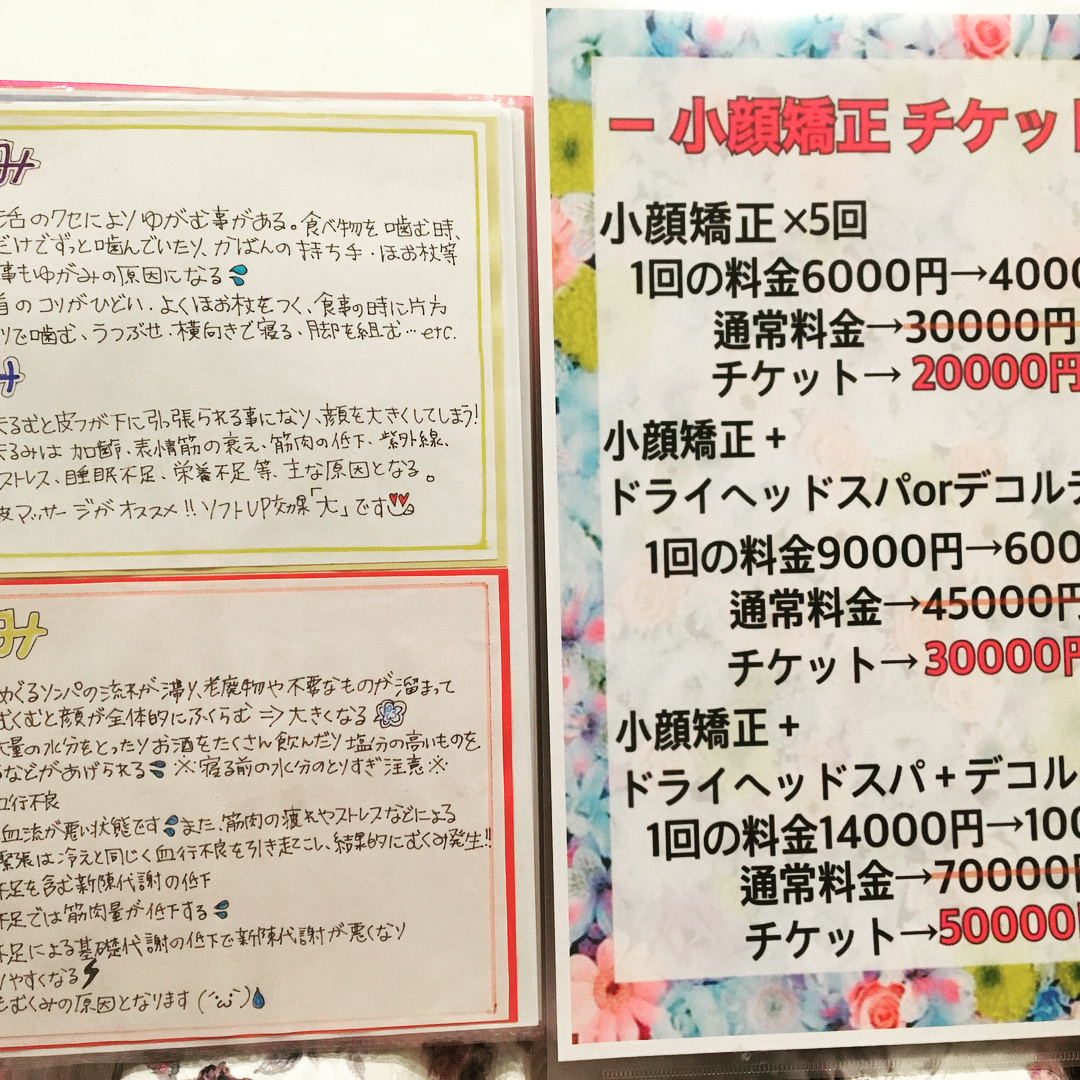 み
活のクセによりゆがむ事がある。食べ物を噛む時、
だけでずっと噛んでいたり、かばんの持ち手・ほお杖等
事もゆがみの原因になる
首のコリがひどい・よくほお杖をつく、食事の時に片方
リで噛む、うつぶせ・横向きで寝る、脚を組む…etc.
み
たるむと皮フが下に引っ張られる事になり、顔を大きくしてしまう!
たるみは 加齢、表情筋の衰え、筋肉の低下、紫外線、
ストレス、睡眠不足、栄養不足 等、主な原因となる。
皮マッサージがオススメ!! ソフトUP効果「大」です
み
めぐるリンパの流れが滞り、老廃物や不要なものが溜まって
むくむと顔が全体的にふくらむ⇒大きくなる
大量の水分をとったりお酒をたくさん飲んだり塩分の高いものを
るなどがあげられる ※寝る前の水分のとりすぎ注意※
血行不良
血流が悪い状態です また、筋肉の疲れやストレスなどによる
緊張は冷えと同じく血行不良を引き起こし、結果的にむくみ発生!!
不足を含む新陳代謝の低下
不足では筋肉量が低下する
不足による基礎代謝の低下で新陳代謝が悪くなり
りやすくなる
もむくみの原因となります(´ω`)
ー 小顔矯正 チケット
小顔矯正 ×5回
1回の料金6000円→4000
通常料金→30000円
チケット→ 20000円
小顔矯正 +
ドライヘッドスパorデコルテ
1回の料金9000円→600
通常料金→45000円
チケット→30000円
小顔矯正 +
ドライヘッドスパ + デコル
1回の料金14000円→100
通常料金→70000円
チケット→50000円